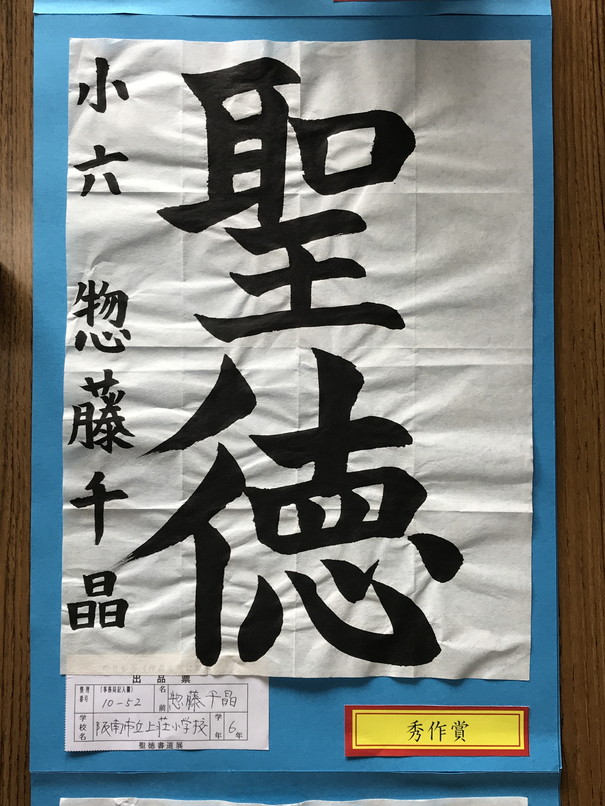 聖徳
小六 惣藤千晶
出品票
整理番号 (事務局記入欄) 10-52 名前 惣藤千晶
学校名 阪南市立上荘小学校 学年 6年
聖徳書道展
秀作賞